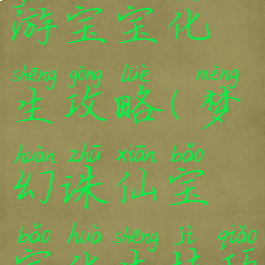 游宝宝化
shēng gōng lüè mèng
生攻略(梦
huàn zhū xiān bǎo
幻诛仙宝
bǎo huà shēng jì qiǎo